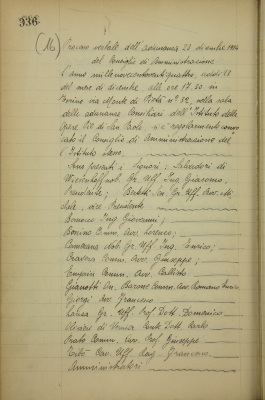 336
(16) Processo verbale dell'adunanza 23 dicembre 1924
del Consiglio di Amministrazione
L'anno millenovecentoventiquattro, addì 23
del mese di dicembre alle ore 17.30 in
Torino via Monte di Pietà n° 32, nella sala
delle adunanze Consiliari dell'Istituto delle
Opere Pie di San Paolo si è regolarmente
il Consiglio di Amministrazione del
l'Istituto stesso.
Sono presenti i Signori: Salvadori di
Wiesenhoff nob. Gr. Uff. Ing. Giacomo,
Presidente; Gr. Uff. Avv.
Vice Presidente
Ing. Giovanni;
Bonino Comm. Avv. Lorenzo;
Nob. Gr. Uff. Ing. Enrico;
Cravero Comm. Avv. Giuseppe;
Comm. Avv. Callisto
Gianotti On. Barone Comm. Avv. Romano
Giorgi Avv. Francesco
Gr. Uff. Prof. Dott. Domenico
di Dott. Carlo
Prato Comm. Avv. Prof. Giuseppe
Cav. Uff. Rag. Francesco
Amministratori